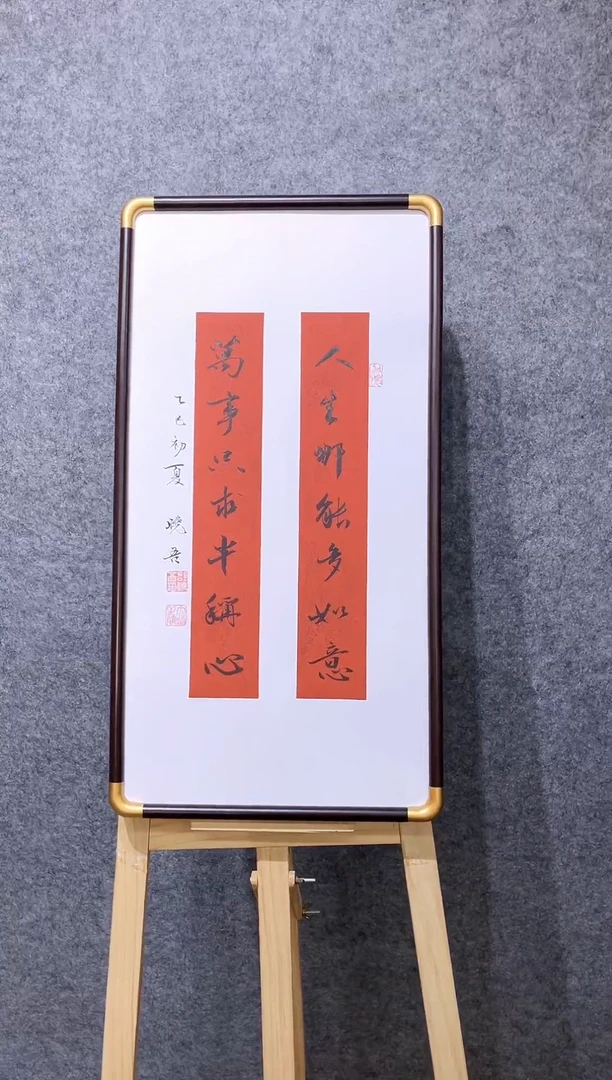 人生哪能多如意
萬事只求半稱心
乙巳初夏 曉吾